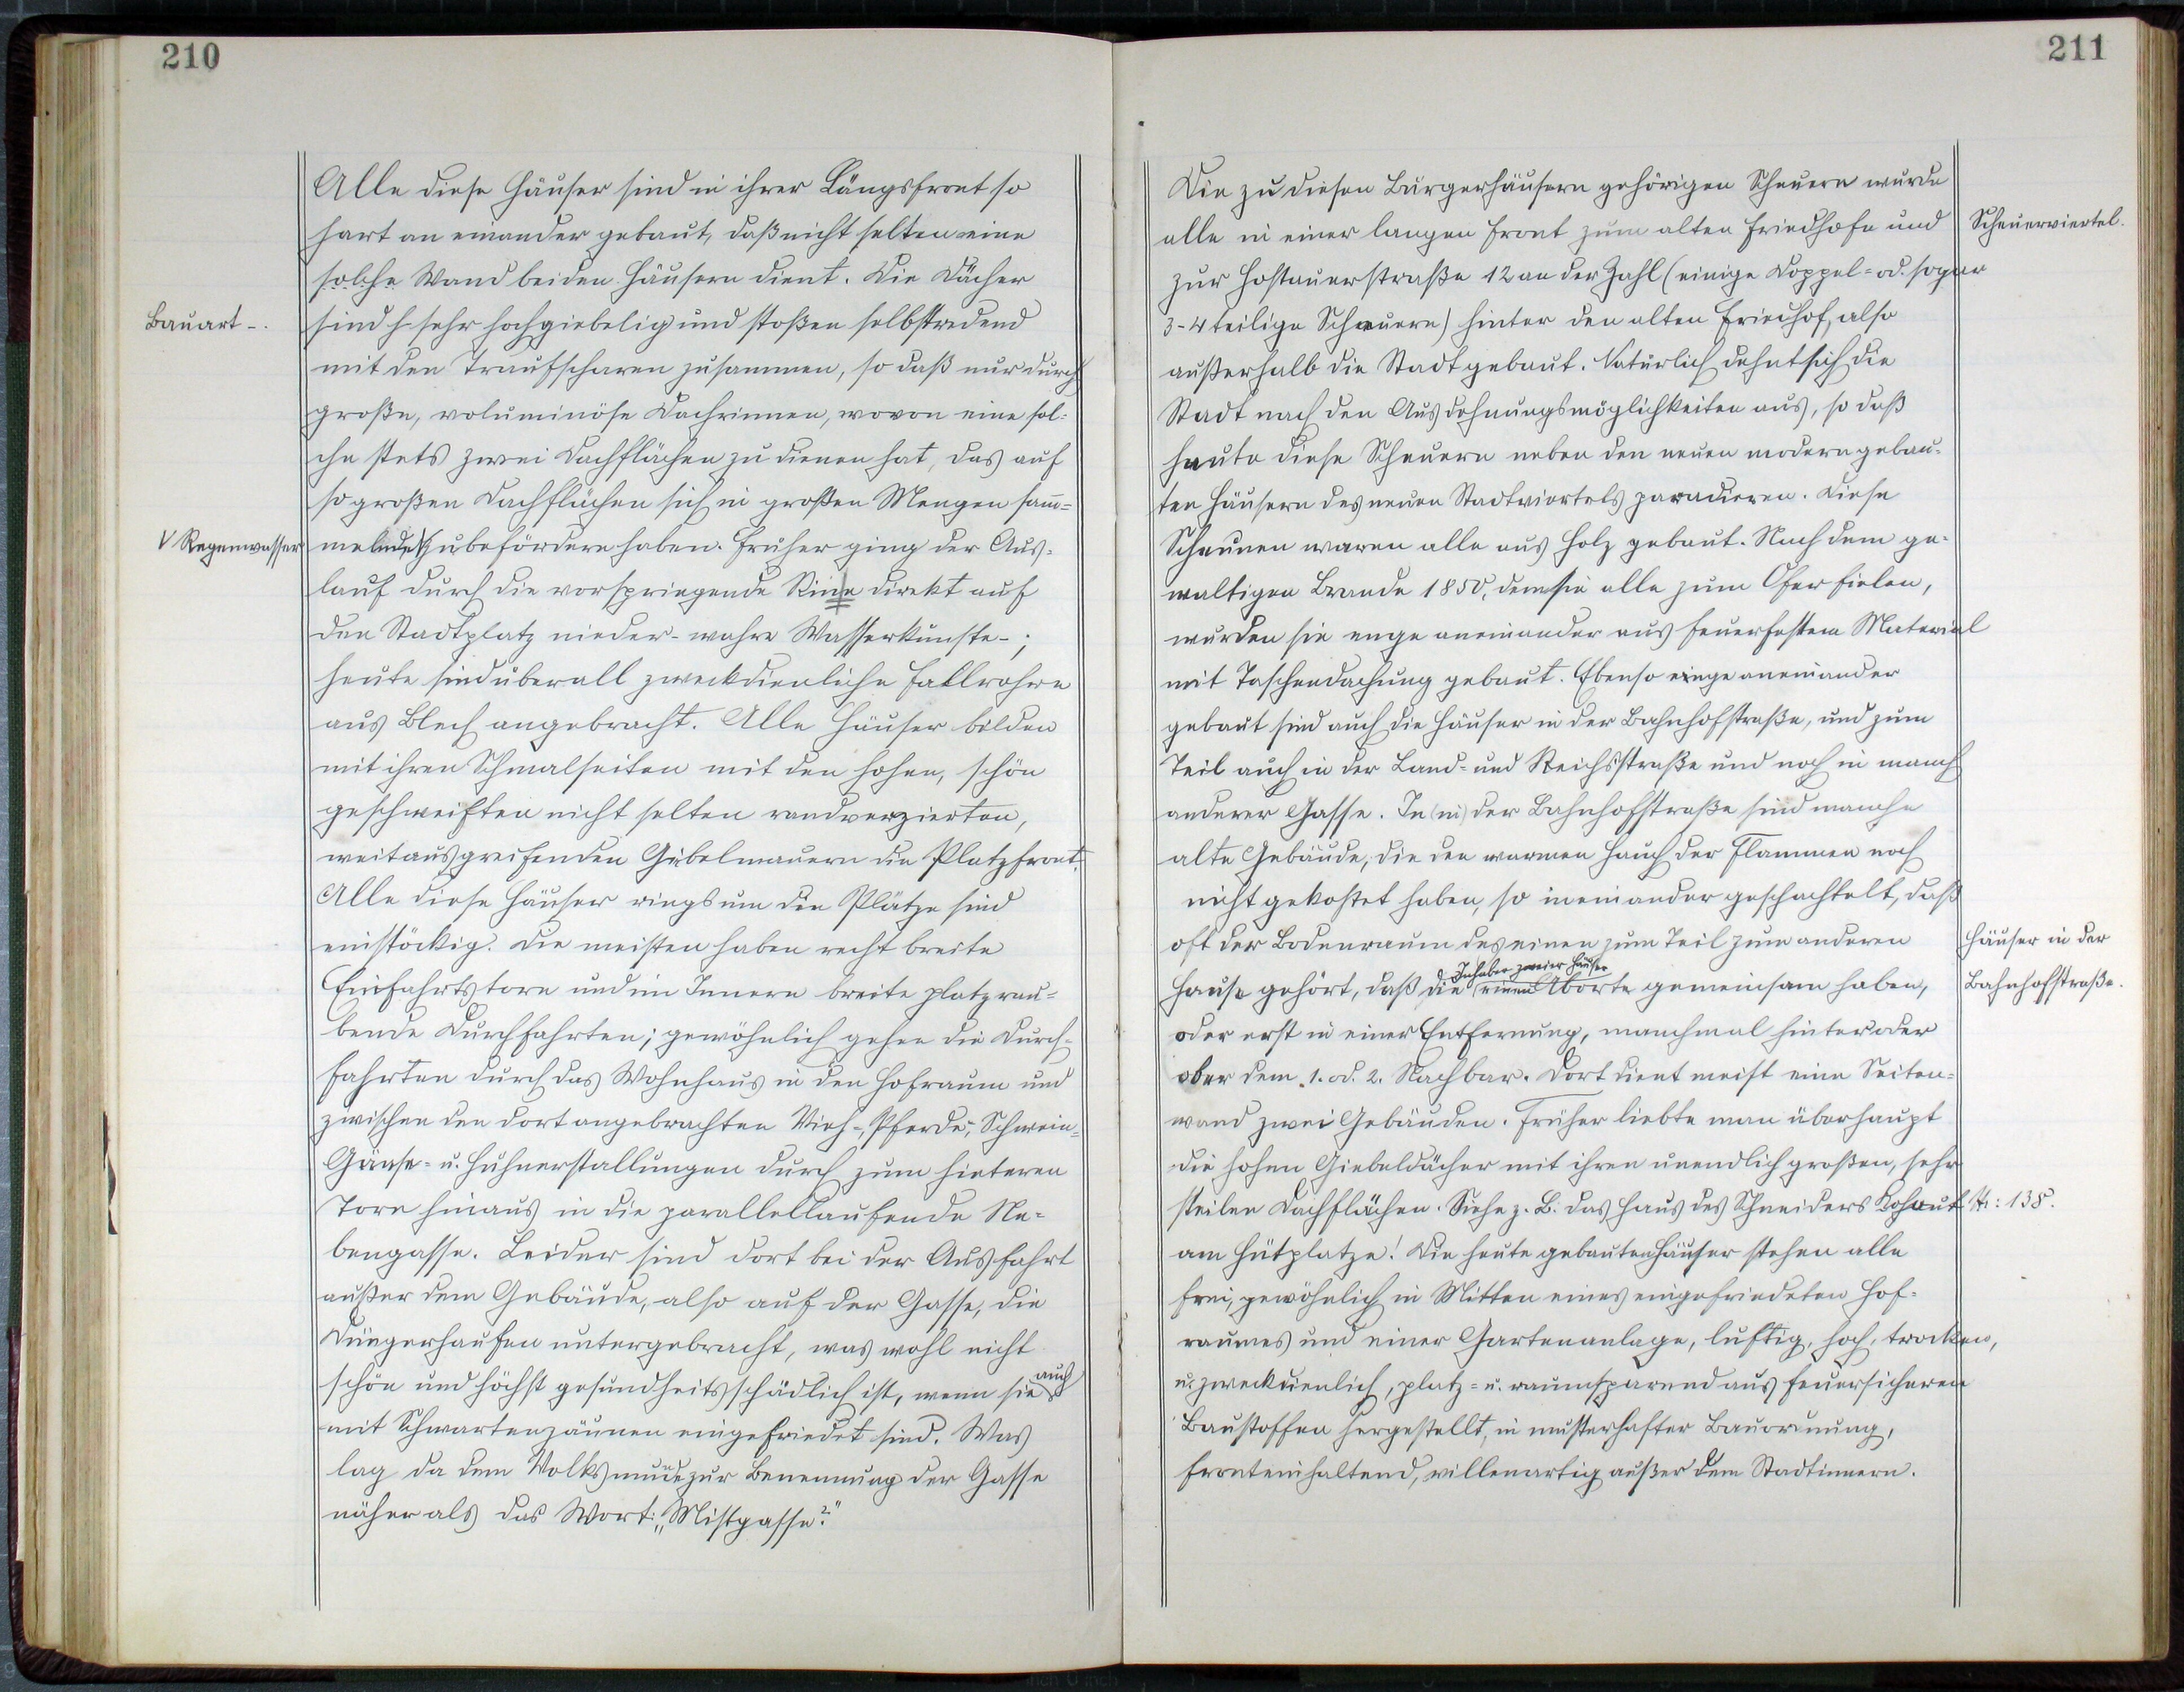 210
Alle diese Häuser sind in ihrer Längsfront so
hart an einander gebaut, daß nicht selten eine
solche Wand beiden Häusern dient. Die Dächer
Bauart-.
sind sehr hochgiebelig und stoßen selbstredend
mit den Traufscharen zusammen, so daß nur durch
große, voluminöse Dachrinnen, wovon eine sol-
che stets zwei Dachflächen zu dienen hat, das auf
so großen Dachflächen sich in großen Mengen sam̄-
V Regenwasser
melnde V zubefördern haben. Früher ging der Aus-
lauf durch die vorspringende Rinne direkt auf
den Stadtplatz nieder - wahre Wasserkünste -;
heute sind überall zweckdienliche Fallrohre
aus Blech angebracht. Alle Häuser bilden
mit ihren Schmalseiten mit den hohen, schön
geschweiften nicht selten randverzierten,
weitausgreifenden Giebelmauern die Platzfront.
Alle diese Häuser rings um die Plätze sind
einstöckig. Die meisten haben recht breite
Einfahrtstore und im Innern breite platzrau-
bende Durchfahrten; gewöhnlich gehen die Durch-
fahrten durch das Wohnhaus in den Hofraum und
zwischen den dort angebrachten Vieh-, Pferde-, Schwein-
Gänse- u. Huhnerstallungen durch zum hinteren
Tore hinaus in die parallellaufende Ne-
bengasse. Leider sind dort bei der Ausfahrt
außer dem Gebäude, also auf der Gasse, die
Düngerhaufen untergebracht, was wohl nicht
schön und höchst gesundheitsschädlich ist, wenn sie auch
mit Schwartenzäunen eingefriedet sind. Was
lag da dem Volksmunde zur Benennung der Gasse
näher als das Wort: „Mistgasse?"
211
Die zu diesen Bürgerhäusern gehörigen Scheuern wurde
alle in einer langen Front zum alten Friedhofe und
Scheuerviertel.
zur Hostauerstraße 12 an der Zahl (einige Doppel- od. sogar
3-4 teilige Scheuern) hinter den alten Friedhof, also
außerhalb die Stadt gebaut. Natürlich dehnt sich die
Stadt nach den Ausdehnungsmöglichkeiten aus, so daß
heute diese Scheuern neben den neuen modern gebau-
ten Häusern des neuen Stadtviertels paradieren. Diese
Scheunen waren alle aus Holz gebaut. Nach dem ge-
waltigen Brande 1850, dem sie alle zum Ofer fielen,
wurden sie enge aneinander aus feuerfestem Material
mit Taschendachung gebaut. Ebenso enge aneinander
gebaut sind auch die Häuser in der Bahnhofstraße, und zum
Teil auch in der Land- und Reichsstraße und noch in manch
anderer Gasse. In (in) der Bahnhofstraße sind manche
alte Gebäude, die den warmen Hauch der Flammen noch
nicht gekostet haben, so ineinander geschachtelt, daß
oft der Bodenraum des einen zum Teil zum anderen
Häuser in der
Inhaber zweier Häuser
Hause gehört, daß die einen Aborte gemeinsam haben,
Bahnhofstraße.
oder erst in einer Entfernung, manchmal hinter oder
ober dem 1. od. 2. Nachbar. Dort dient meist eine Seiten-
wand zwei Gebäuden. Früher liebte man überhaupt
die hohen Giebeldächer mit ihren unendlich großen, sehr
steilen Dachflächen. Siehe z. B. das Haus des Schneiders Kohaut N: 138.
am Hütplatze! Die heute gebauten Häuser stehen alle
frei, gewöhnlich in Mitten eines eingefriedeten Hof-
raumes und einer Gartenanlage, luftig, hoch, trocken,
u. zweckdienlich, platz- u. raumsparend aus feuersicheren
Baustoffen hergestellt, in musterhafter Bauordnung,
fronteinhaltend, villenartig außer dem Stadtinnern.